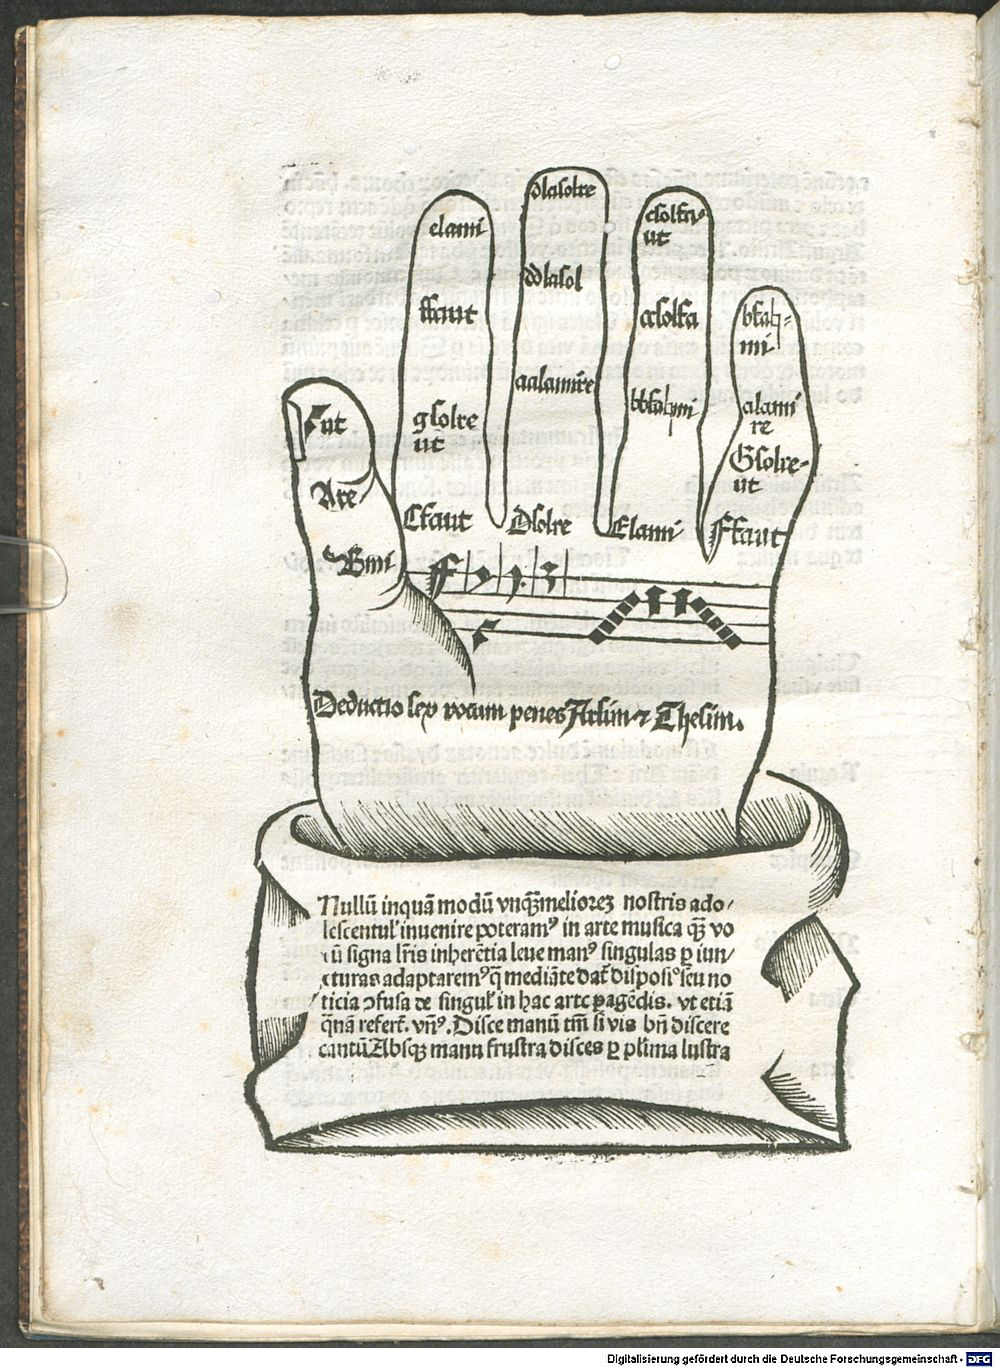 dlasolre
elami
csolfa-
ut
ddlasol
ffaut
bfah=
mi
aalamire
bbfahmi
alami
re
gsolre
ut
Γut
Gsolre-
ut
Are
Cfaut Dsolre Elami Ffaut
Bmi
Deductio sex vocum penes Arsim ⁊ Thesim.
Nullū inquā modū vnq̄ꝫ meliorēꝫ nostris ado/
lescentuł inuenire poteramꝰ in arte musica q̄ꝫ vo
cū signa lr̄is inherētia leue manꝰ singulas ꝑ iun/
cturas adaptaremꝰ q̄ mediāte dať disposiꝰ seu no
ticia ꝯfusa de singuł in hac arte ꝑagēdis. vt etiā
q̄nā referť. vnꝰ. Disce manū tm̄ si vis bn̄ discere
cantū Absqꝫ manu frustra disces ꝑ pľima lustra
Digitalisierung gefördert durch die Deutsche Forschungsgemeinschaft - DFG